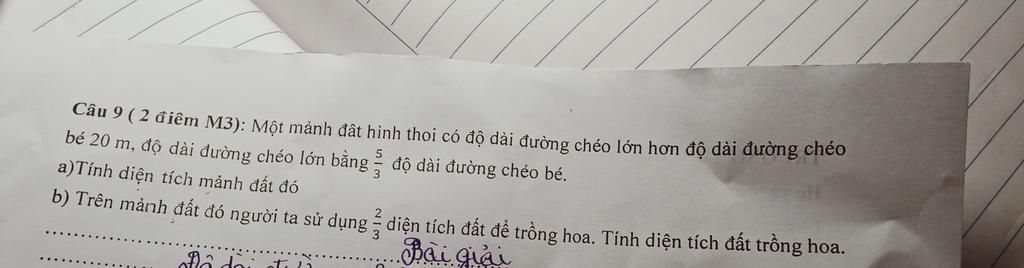 Câu 9 ( 2 điêm M3): Một mảnh đât hình thoi có độ dài đường chéo lớn hơn độ dài đường chéo
bé 20 m, độ dài đường chéo lớn bằng 5/3 độ dài đường chéo bé.
a)Tính diện tích mảnh đất đó
b) Trên mảnh đất đó người ta sử dụng 2/3 diện tích đất để trồng hoa. Tính diện tích đất trồng hoa.
Bài giải